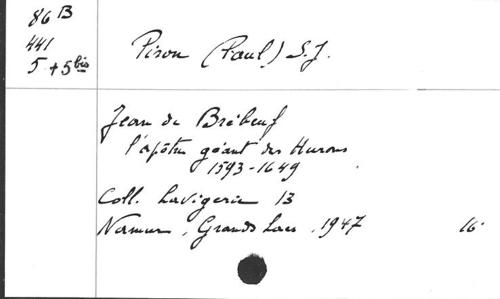 86 B
441
5 + 5 bis
Piron (Paul) S.J.
Jean de Brébeuf
l'apôtre géant des Hurons
1593-1649
Coll. Lavigerie 13
Namur, Grands Lacs, 1947 16°